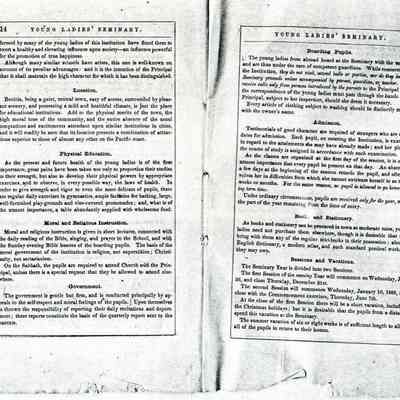 24 YOUNG LADIES' SEMINARY.
formed by many of the young ladies of this institution have fitted them to
exert a healthy and elevating influence upon society—an influence powerful
for the promotion of true happiness.
Although many similar schools have arisen, this one is well-known on
account of its peculiar advantages: and it is the intention of the Principal
that it shall maintain the high character for which it has been distinguished.
Location.
Benicia, being a quiet, central town, easy of access, surrounded by pleas-
ant scenery, and possessing a mild and healthful climate, is just the place
for educational institutions. Add to the physical merits of the town, the
high moral tone of the community, and the entire absence of the usual
temptations and annoyances attendant upon similar institutions in cities,
and it will readily be seen that its location presents a combination of attrac-
tions superior to those of almost any other on the Pacific coast.
Physical Education.
As the present and future health of the young ladies is of the first
importance, great pains have been taken not only to proportion their studies
to their strength, but also to develop their physical powers by appropriate
exercises, and to observe, in every possible way, the laws of health. In
order to give strength and vigor to even the most delicate of pupils, there
are regular daily exercises in gymnastics, ample facilities for bathing, large,
well-furnished play-grounds and vine-covered promenades; and, what is of
the utmost importance, a table abundantly supplied with wholesome food.
Moral and Religious Instruction.
Moral and religious instruction is given in short lectures, connected with
the daily reading of the Bible, singing, and prayer in the School, and with
the Sunday evening Bible lessons of the boarding pupils. The basis of the
moral government of the institution is religion, not superstition; Christi-
anity, not sectarianism.
On the Sabbath, the pupils are required to attend Church with the Prin-
cipal, unless there is a special request that they be allowed to attend else-
where.
Government.
The government is gentle but firm, and is conducted principally by ap-
peals to the self-respect and moral feelings of the pupils. Upon themselves
is thrown the responsibility of reporting their daily recitations and deport-
ment; these reports constitute the basis of the quarterly report sent to the
parents or guardians.
YOUNG LADIES' SEMINARY.
Boarding Pupils.
The young ladies from abroad board at the Seminary with the
and are thus under the care of competent guardians. While connected
the Institution, they do not visit, attend balls or parties, nor do they
Seminary grounds unless accompanied by parent, guardian, or teacher.
receive calls only from persons introduced by the parents to the Principal
the correspondence of the young ladies must pass through the hands
Principal, subject to her inspection, should she deem it necessary.
Every article of clothing subject to washing should be distinctly
with the owner's name.
Admission.
Testimonials of good character are required of strangers who are
dates for admission. Each pupil, on entering the Institution, is
in regard to the attainments she may have already made; and her
the course of study is assigned in accordance with the same.
As the classes are organized at the first day of the session, it is
utmost importance that every pupil be present on that day. An absence
a few days at the beginning of the session retards the pupil, and often
volves her in difficulties from which she cannot extricate herself in
weeks or months. For the same reason, no pupil is allowed to go home
ing term time.
Under ordinary circumstances, pupils are received only for the year,
the part of the year remaining from the time of entry.
Books and Stationery.
As books and stationery can be procured in town at moderate rates,
ladies need not purchase them elsewhere, though it is desirable that
bring with them any of the requisite text-books in their possession; also
English dictionary, a modern atlas, and such standard poetical works
they may own.
Sessions and Vacations.
The Seminary Year is divided into two Sessions.
The first Session of the ensuing Year will commence on Wednesday,
and close Thursday, December 21st.
The second Session will commence Wednesday, January 10,
close with the Commencement exercises, Thursday, June 7th.
At the close of the first Session there will be a short vacation, including
the Christmas holidays; but it is desirable that pupils from a distance
spend this vacation at the Seminary.
The summer vacation of six or eight weeks is of sufficient length to allow
all of the pupils to return to their homes.